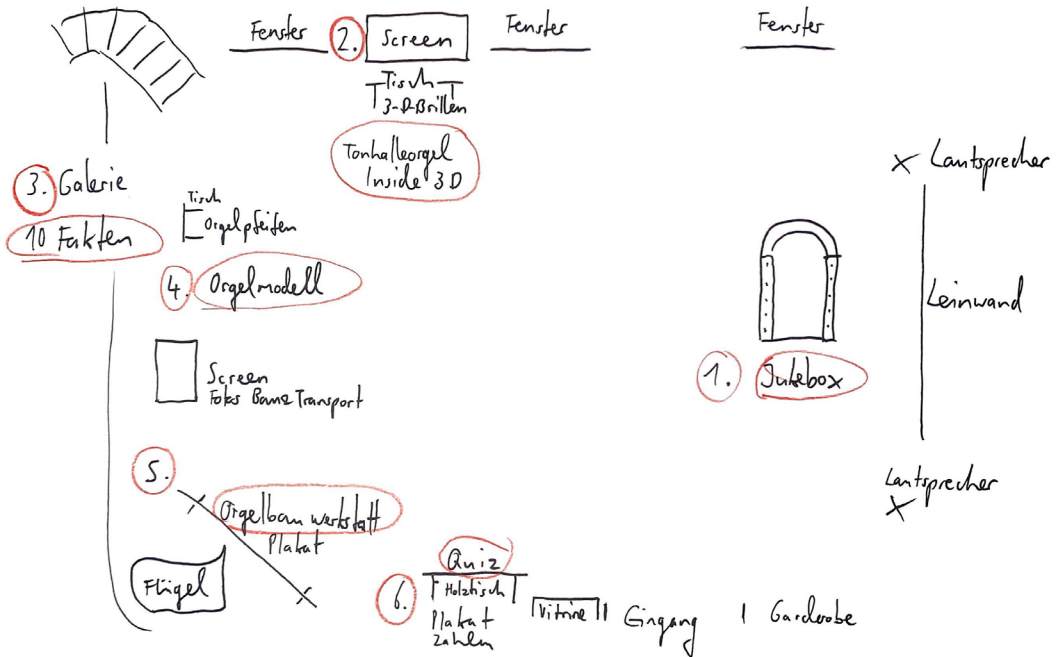 Fenster
2. Screen
Fenster
Fenster
Tisch
3-D-Brillen
Tonhalleorgel
Inside 3D
Lautsprecher
3. Galerie
10 Fakten
Tisch
Orgelpfeifen
4. Orgelmodell
Leinwand
Screen
Fotos Bau & Transport
1. Jukebox
5.
Orgelbauwerkstatt
Plakat
Lautsprecher
Flügel
Quiz
6. Holztisch
Plakat
Zahlen
Vitrine
Eingang
Garderobe